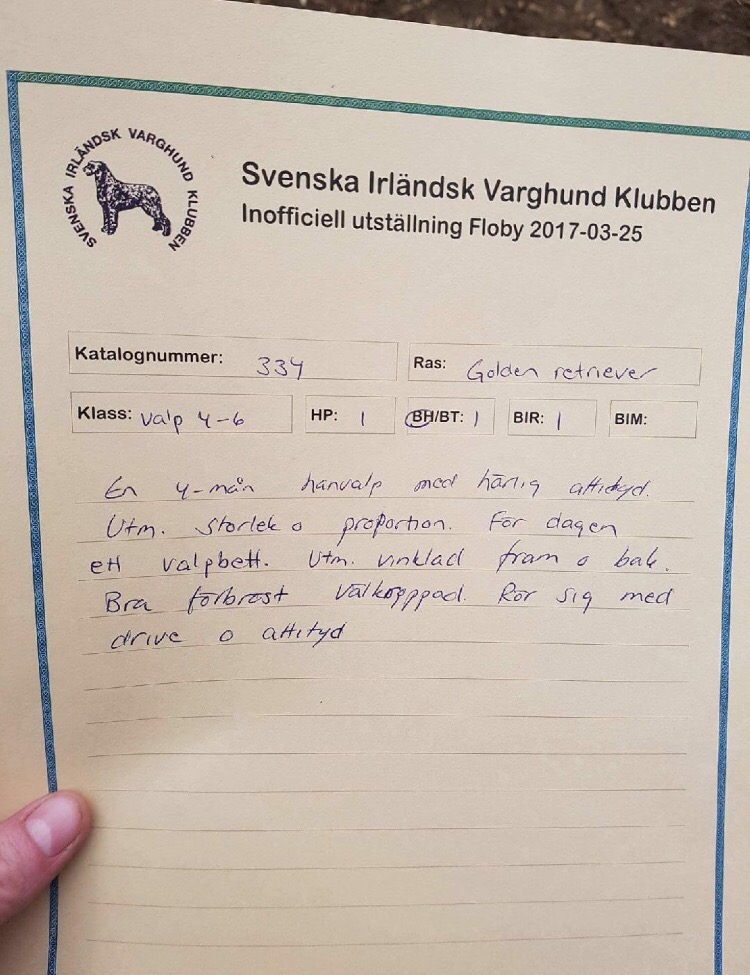 SVENSKA IRLÄNDSK VARGHUND KLUBBEN
Svenska Irländsk Varghund Klubben
Inofficiell utställning Floby 2017-03-25
Katalognummer: 334
Ras: Golden retriever
Klass: valp 4-6
HP: 1
BH/BT: 1
BIR: 1
BIM:
En 4-mån hanvalp med härlig attityd.
Utm. storlek o proportion. För dagen
ett valpbett. Utm. vinklad fram o bak.
Bra förbröst välkroppad. Rör sig med
drive o attityd